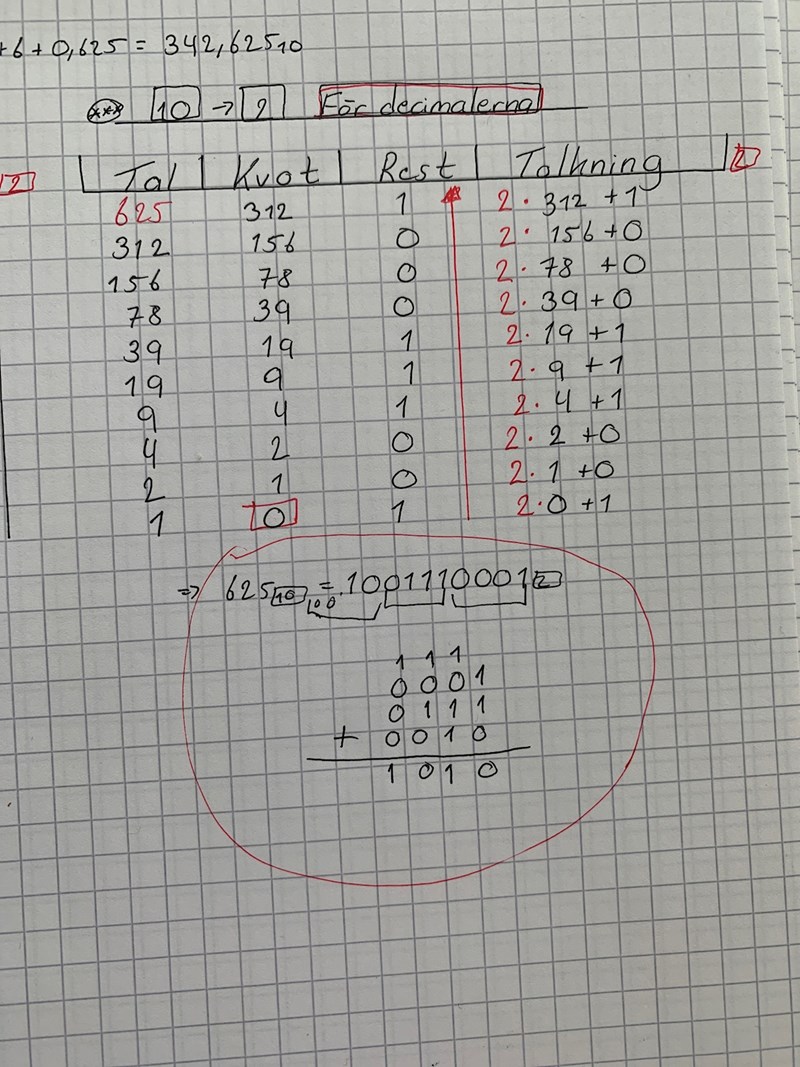 +6+0,625 = 342,625₁₀
*** 10 → 2 För decimalerna
2 Tal | Kvot | Rest | Tolkning 2
625 312 1 2· 312 +1
312 156 0 2· 156+0
156 78 0 2· 78 +0
78 39 0 2· 39+0
39 19 1 2· 19 +1
19 9 1 2· 9 +1
9 4 1 2· 4 +1
4 2 0 2· 2 +0
2 1 0 2· 1 +0
1 0 1 2·0 +1
⇒ 625 10 = 1001110001 2
100
1 1 1
0 0 0 1
0 1 1 1
+ 0 0 1 0
1 0 1 0